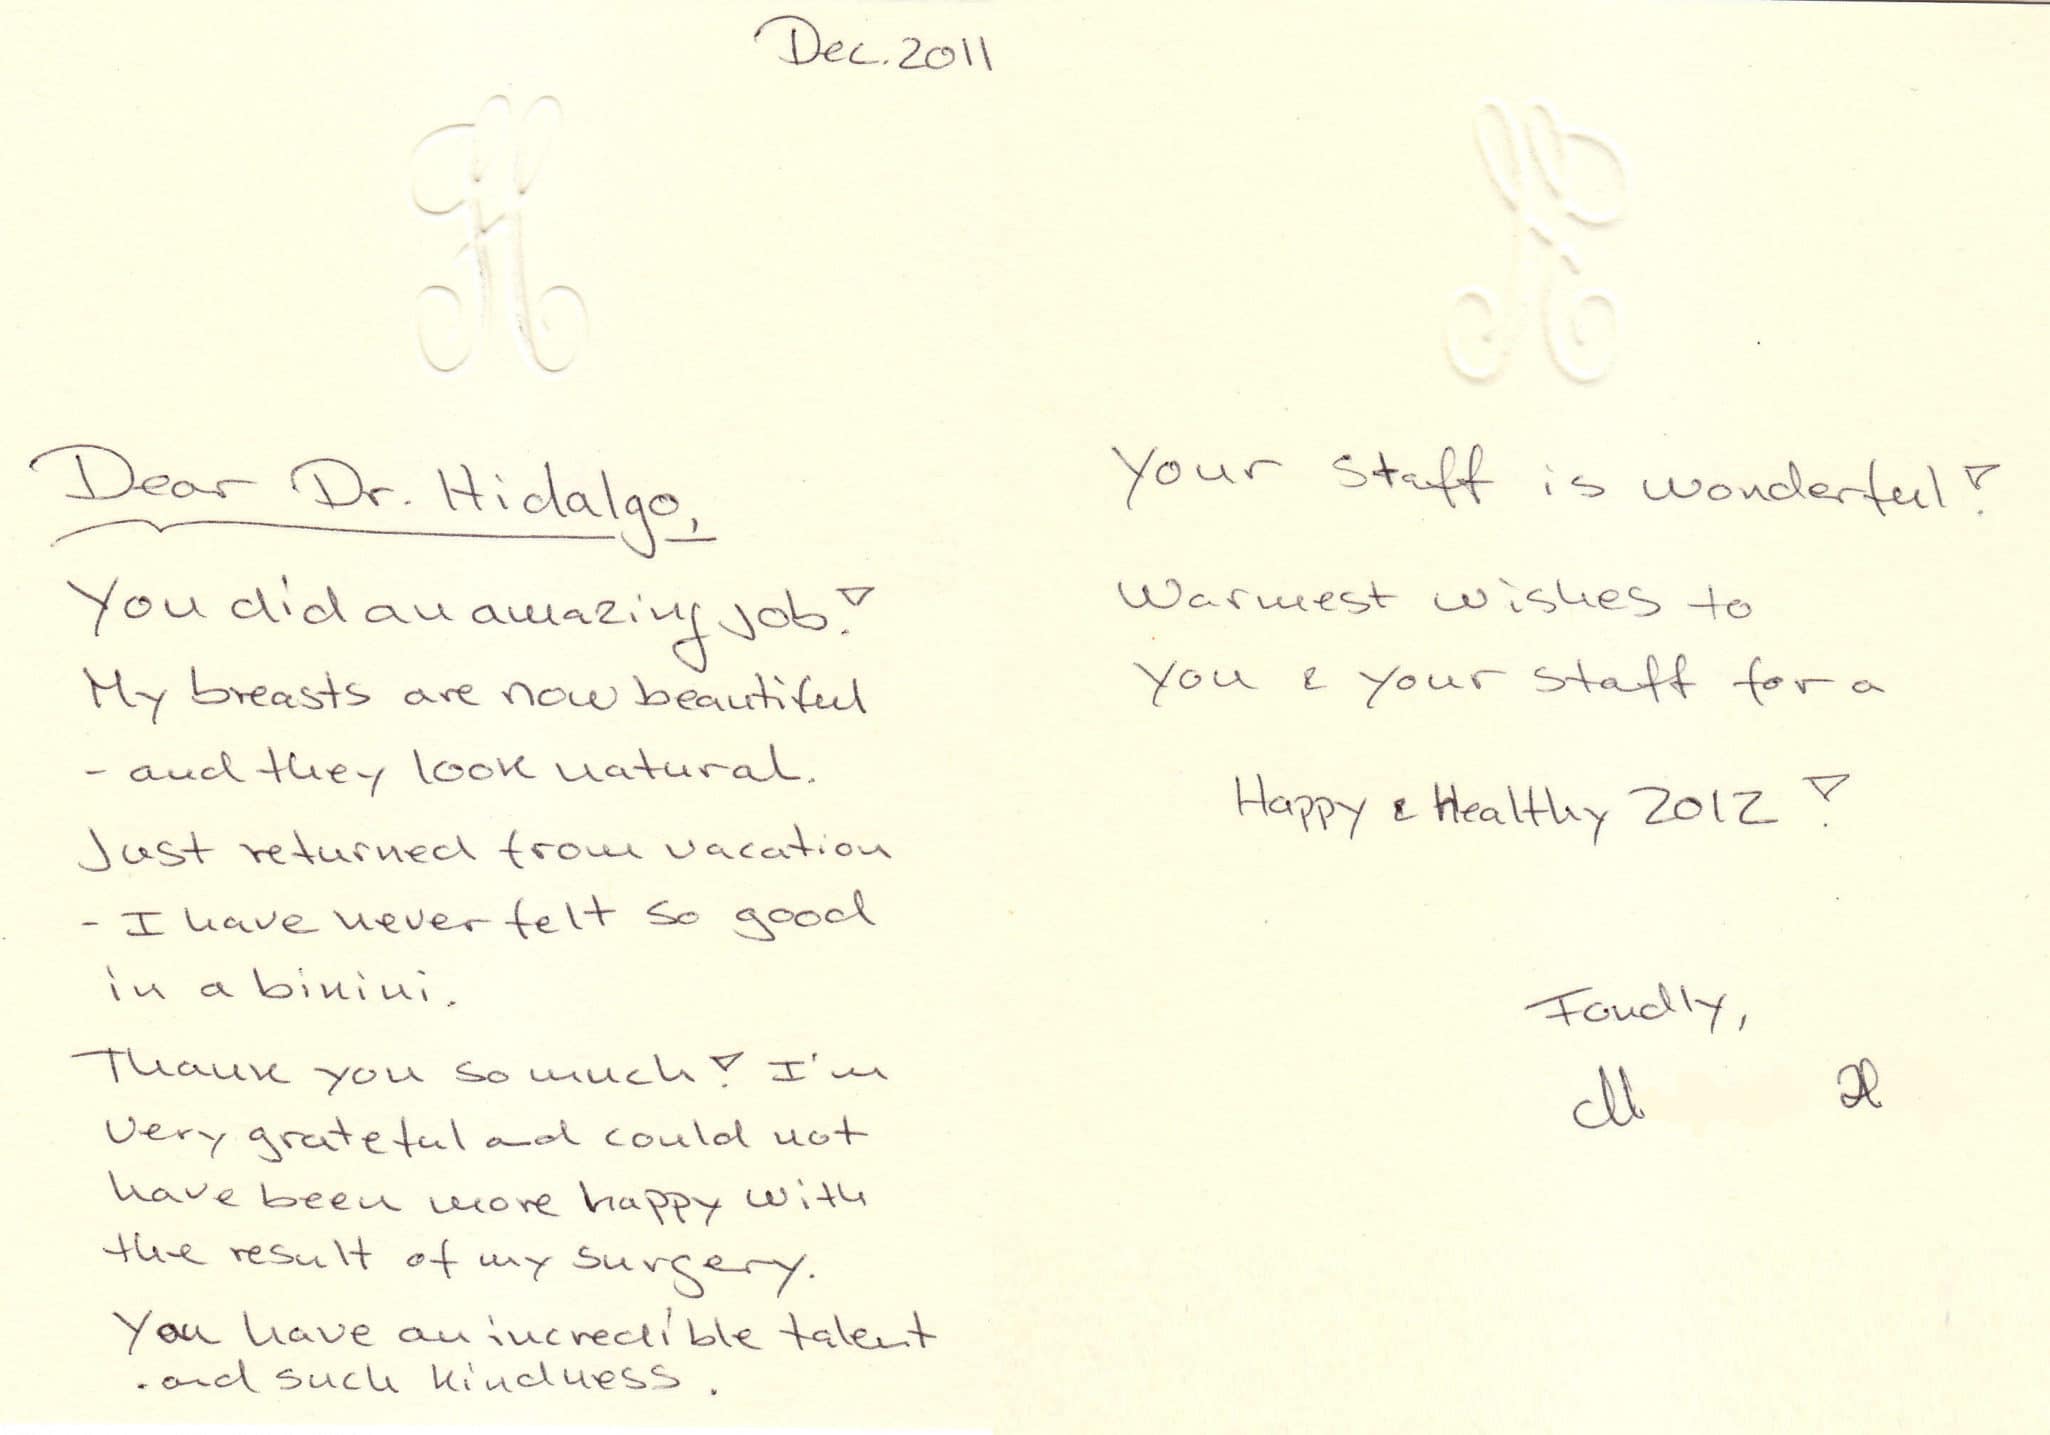 Dec. 2011
H
H
Dear Dr. Hidalgo,
You did an amazing job!
My breasts are now beautiful
- and they look natural.
Just returned from vacation
- I have never felt so good
in a bikini.
Thank you so much! I'm
very grateful and could not
have been more happy with
the result of my surgery.
You have an incredible talent
and such kindness.
Your staff is wonderful!
Warmest wishes to
you & your staff for a
Happy & Healthy 2012!
Fondly,
M H